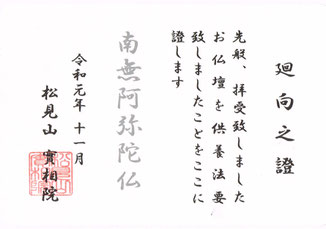 廻向之證
先般、拝受致しました
お仏壇を供養法要
致しましたことをここに
證します
南無阿弥陀仏
令和元年 十一月
松見山 實相院